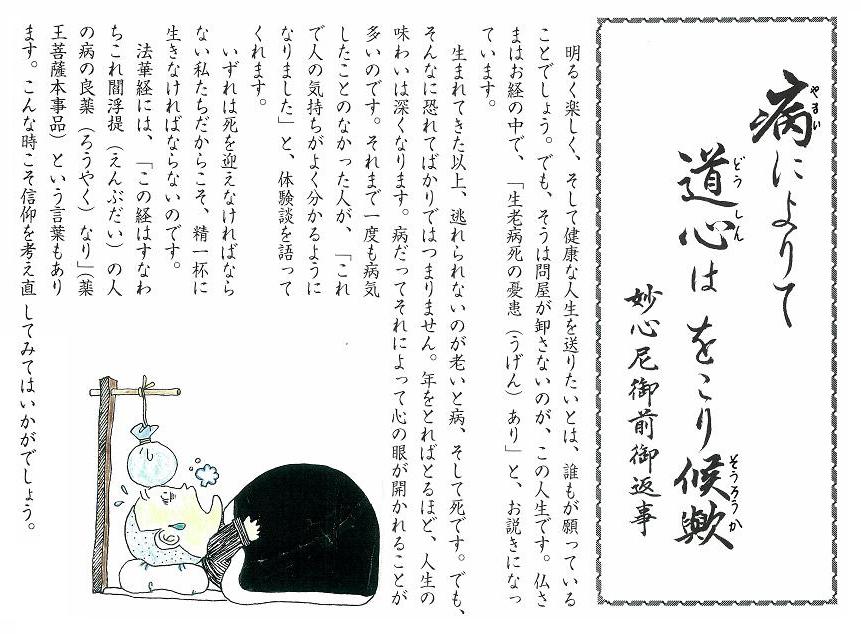 病によりて
やまい
道心は をこり候歟
どうしん
そうろうか
妙心尼御前御返事
明るく楽しく、そして健康な人生を送りたいとは、誰もが願っている
ことでしょう。でも、そうは問屋が卸さないのが、この人生です。仏さ
まはお経の中で、「生老病死の憂患（うげん）あり」と、お説きになっ
ています。
生まれてきた以上、逃れられないのが老いと病、そして死です。でも、
そんなに恐れてばかりではつまりません。年をとればとるほど、人生の
味わいは深くなります。病だってそれによって心の眼が開かれることが
多いのです。それまで一度も病気
したことのなかった人が、「これ
で人の気持ちがよく分かるように
なりました」と、体験談を語って
くれます。
いずれは死を迎えなければなら
ない私たちだからこそ、精一杯に
生きなければならないのです。
法華経には、「この経はすなわ
ちこれ閻浮提（えんぶだい）の人
の病の良薬（ろうやく）なり」（薬
王菩薩本事品）という言葉もあり
ます。こんな時こそ信仰を考え直してみてはいかがでしょう。